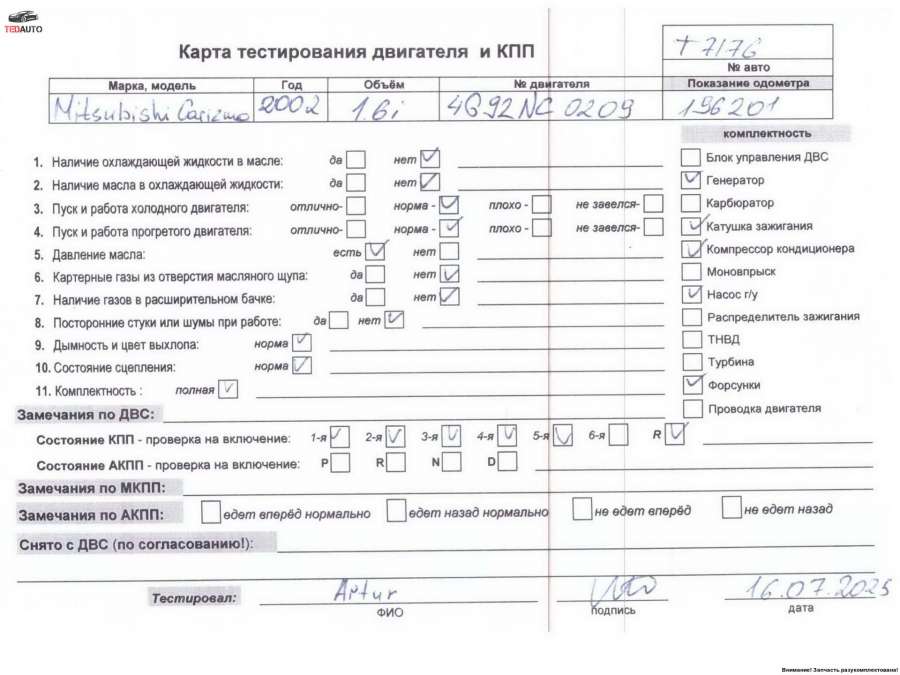 TEDAUTO
Карта тестирования двигателя и КПП
+ 7176
№ авто
Марка, модель Год Объём № двигателя Показание одометра
Mitsubishi Carizma 2002 1.6i 4G92NC 0209 196201
комплектность
1. Наличие охлаждающей жидкости в масле: да нет
2. Наличие масла в охлаждающей жидкости: да нет
3. Пуск и работа холодного двигателя: отлично- норма - плохо - не завелся-
4. Пуск и работа прогретого двигателя: отлично- норма - плохо - не завелся-
5. Давление масла: есть нет
6. Картерные газы из отверстия масляного щупа: да нет
7. Наличие газов в расширительном бачке: да нет
8. Посторонние стуки или шумы при работе: да нет
9. Дымность и цвет выхлопа: норма
10. Состояние сцепления: норма
11. Комплектность : полная
Блок управления ДВС
Генератор
Карбюратор
Катушка зажигания
Компрессор кондиционера
Моновпрыск
Насос г/у
Распределитель зажигания
ТНВД
Турбина
Форсунки
Проводка двигателя
Замечания по ДВС:
Состояние КПП - проверка на включение: 1-я 2-я 3-я 4-я 5-я 6-я R
Состояние АКПП - проверка на включение: P R N D
Замечания по МКПП:
Замечания по АКПП: едет вперёд нормально едет назад нормально не едет вперёд не едет назад
Снято с ДВС (по согласованию!):
Тестировал: Artur 16.07.2025
ФИО подпись дата
Внимание! Запчасть разукомплектована!